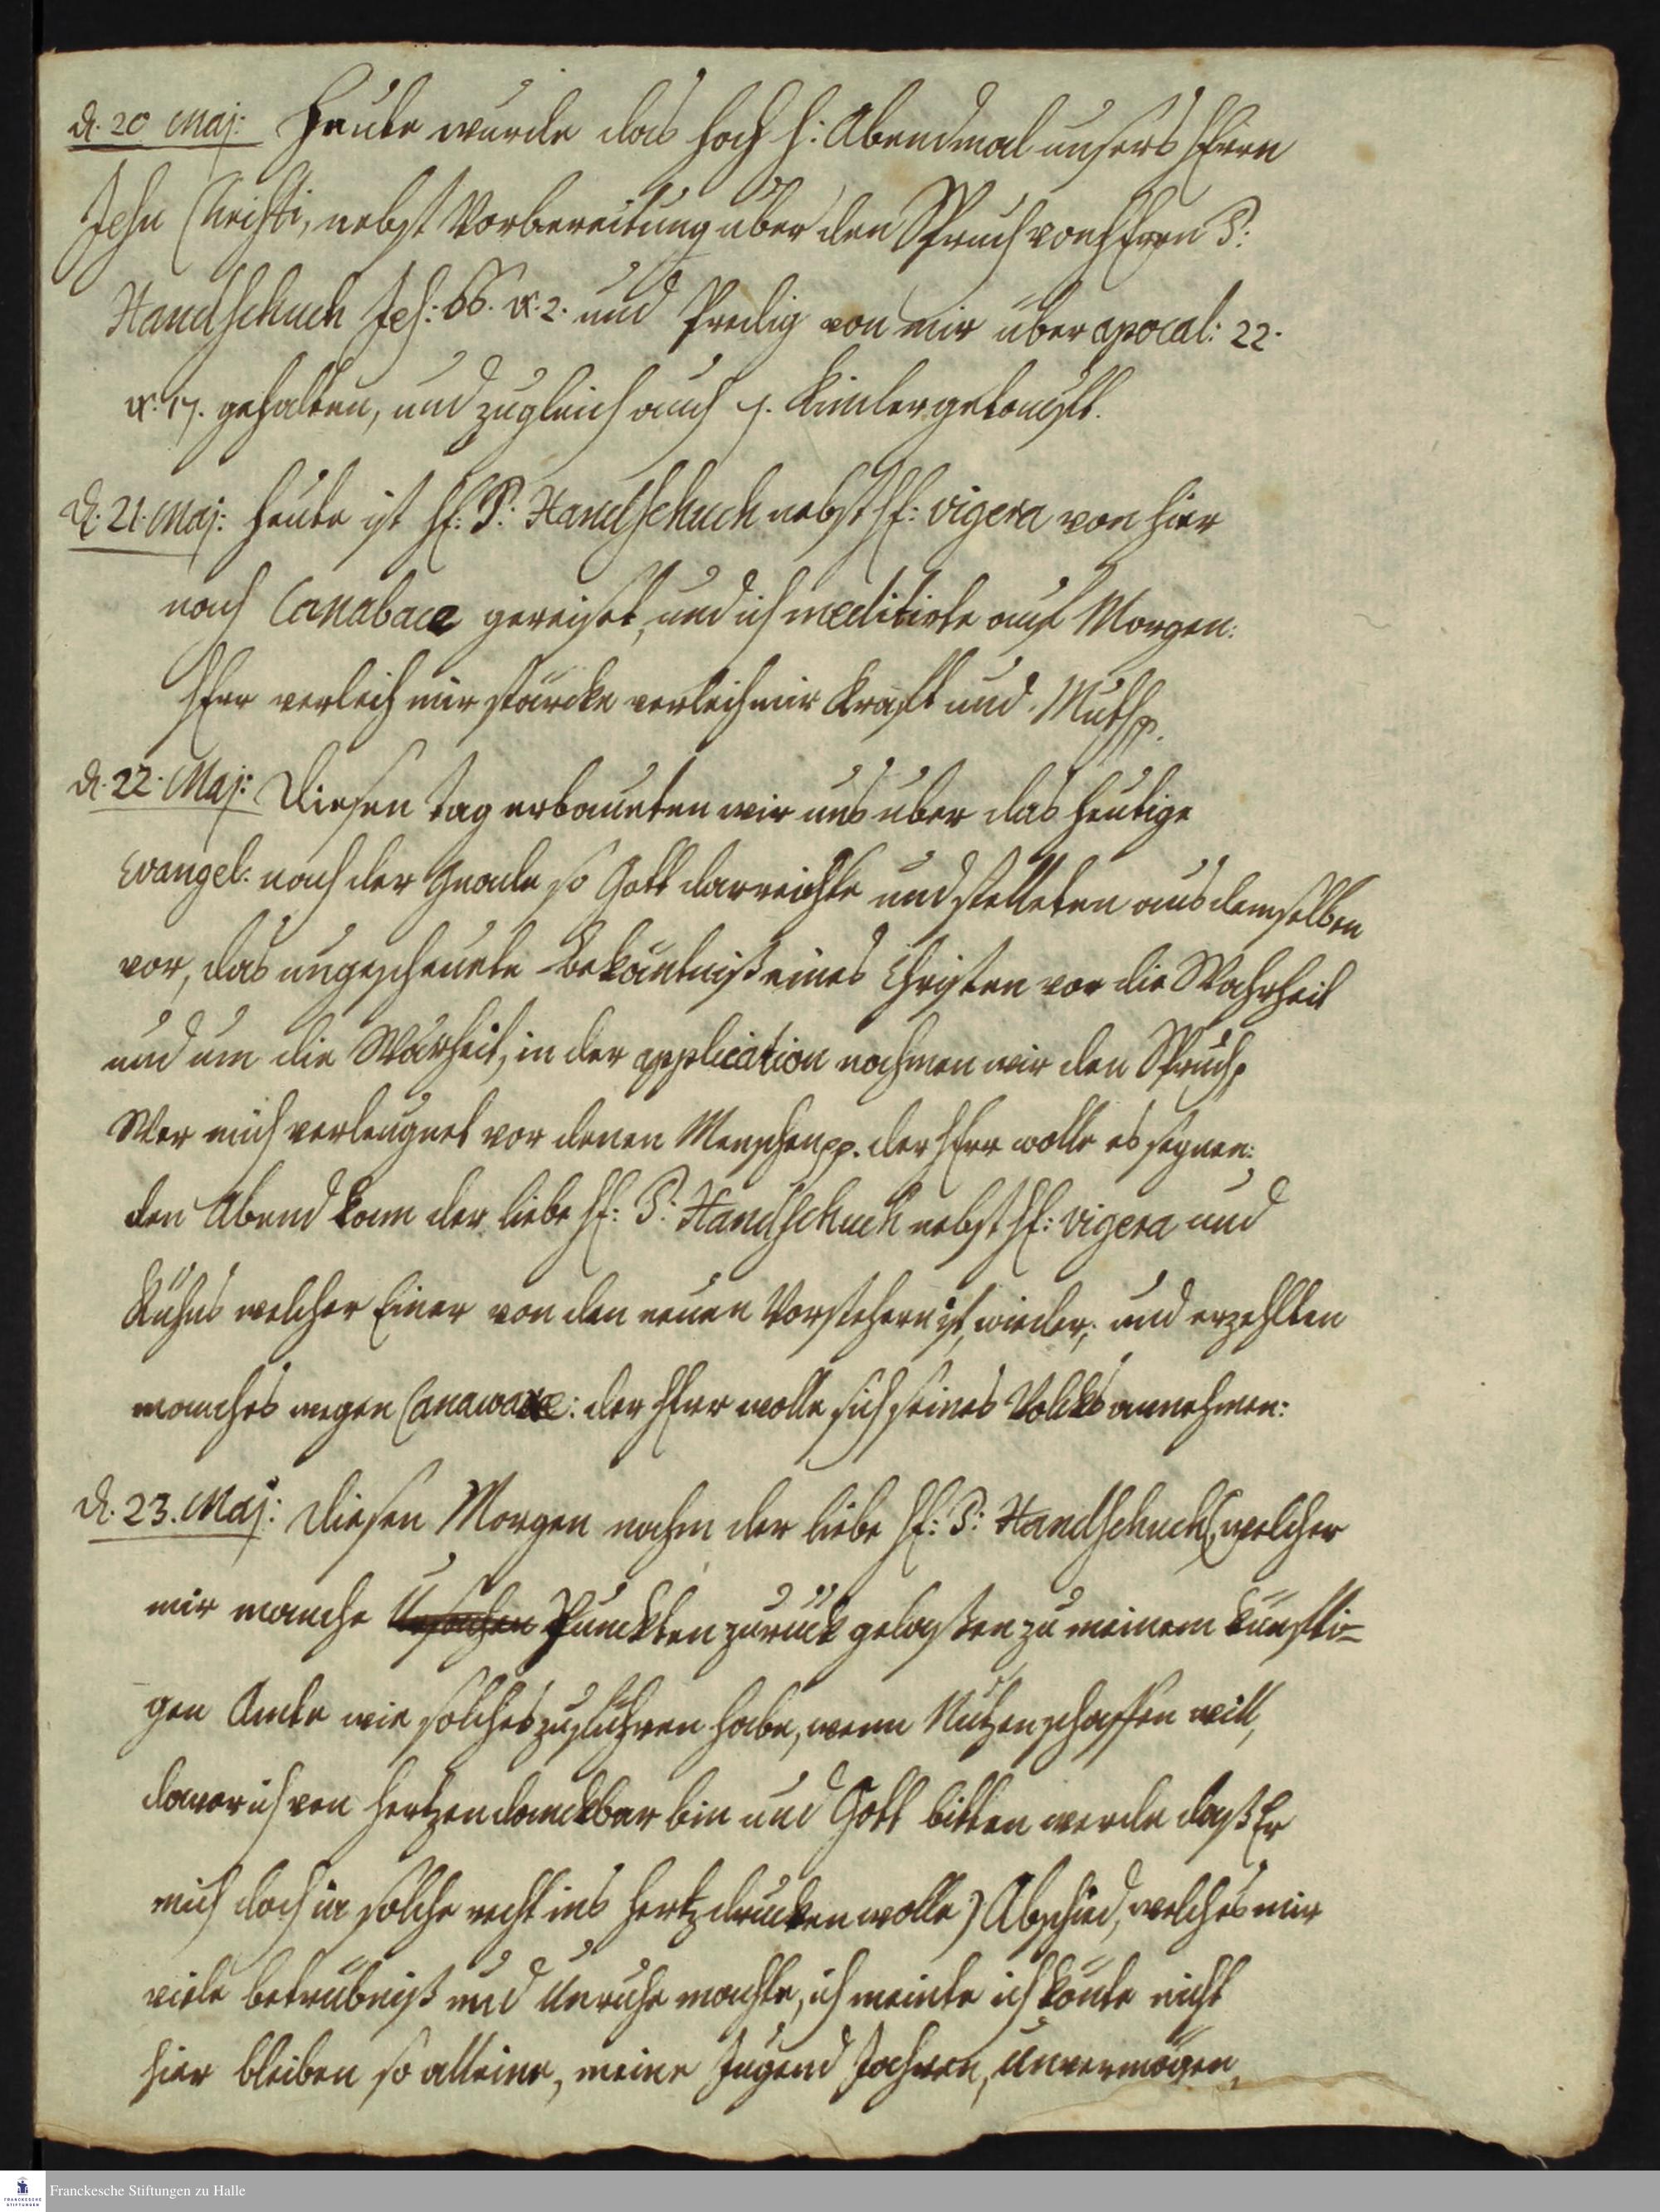 d. 20 Maj: Heute wurde das hoch h: Abendmal unsers HErrn
Jesu Christi, nebst Vorbereitung über den Spruch von HErrn P:
Handschuch Jes: 66. v. 2. und Predig von mir über apocal: 22.
v. 17. gehalten, und zugleich auch 4. Kinder getauft.
d. 21. Maj: heute ist H: P: Handschuch nebst H: vigera von hier
nach Canabace gereiset, und ich meditirte auf Morgen:
HErr verleih mir stärcke verleih mir Krafft und Muth p.
d. 22. Maj: Diesen tag erbaueten wir uns über das heutige
Evangel: nach der Gnade so Gott darreichte und stelleten aus demselben
vor, das ungescheuete Bekäntniß eines Christen vor die Wahrheit
und um die Warheit, in der application nahmen wir den Spruch,
Wer mich verleugnet vor denen Menschen pp. der HErr wolle es segnen:
den Abend kam der liebe H: P: Handschuch nebst H: vigera und
Kühns welcher Einer von den neuen Vorstehern ist, wieder, und erzehlten
manches wegen Canawace: der HErr wolle sich seines Volcks annehmen:
d. 23. Maj: Diesen Morgen nahm der liebe H: P: Handschuch (welcher
mir manche Ursachen Punckten zurück gelaßen zu meinem künffti-
gen Amte wie solches zu führen habe, wenn Nutzen schaffen will,
davor ich von Hertzen danckbar bin und Gott bitten werde daß Er
mich doch in solche recht ins Hertz drucken wolle) Abschied, welches mir
viele betrübniß und Unruhe machte, ich meinte ich könte nicht
hier bleiben so alleine, meine Jugend Jahren, Unvermögen,
Franckesche Stiftungen zu Halle